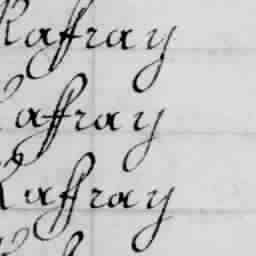 Raffray
Raffray
Raffray